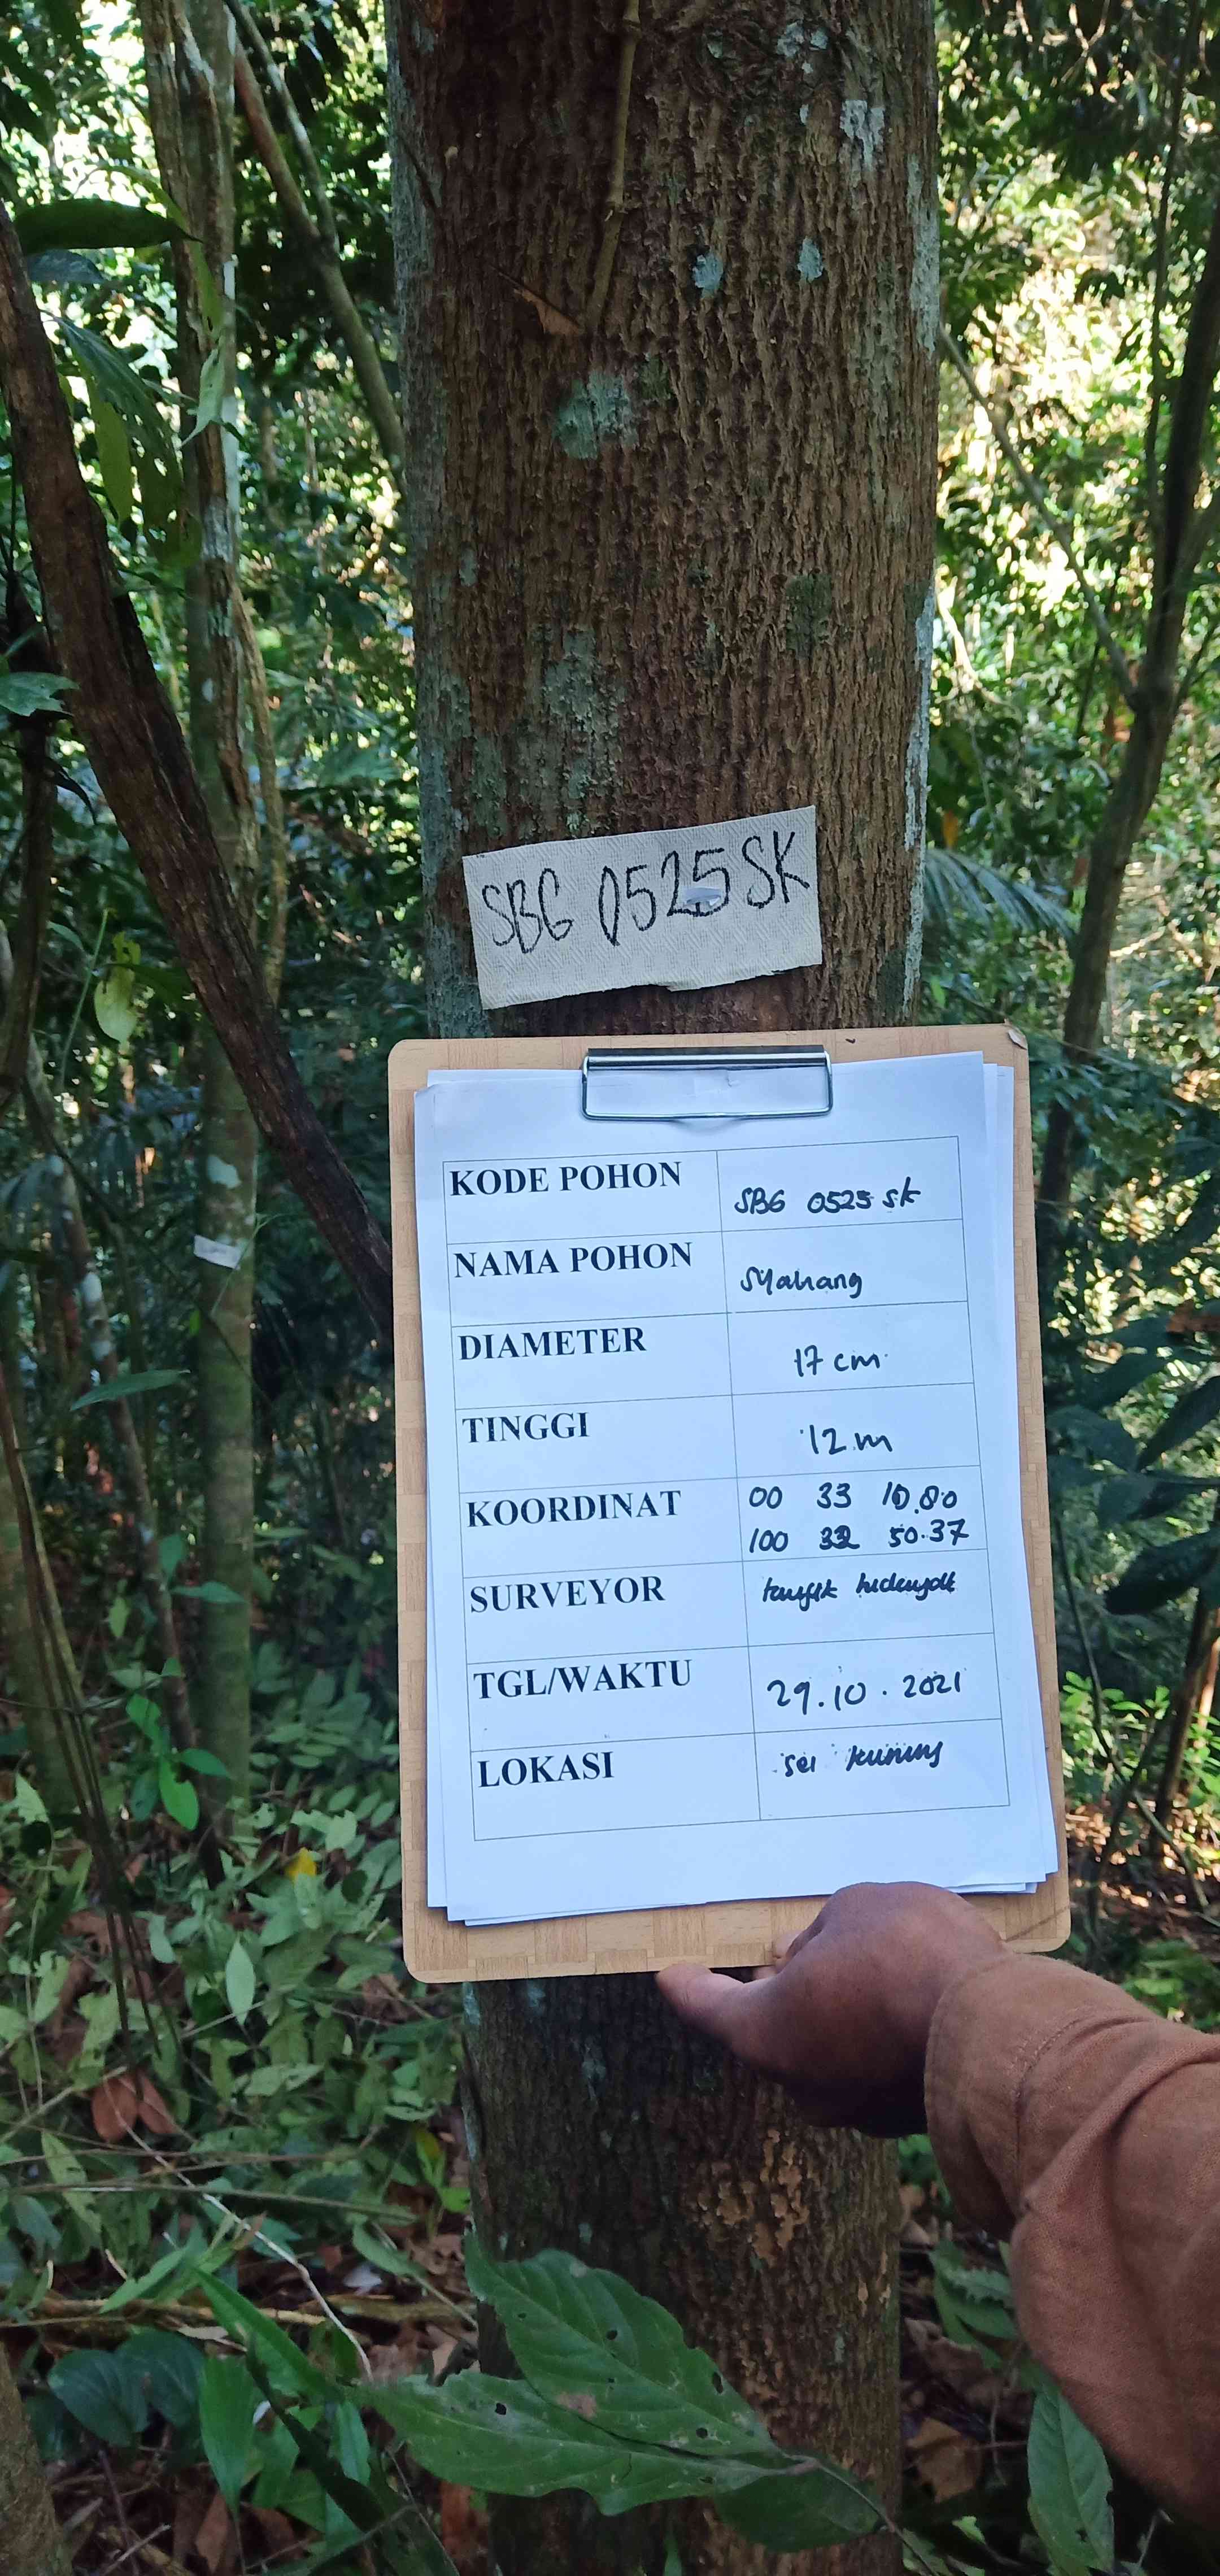 SBG 0525 SK
KODE POHON SBG 0525 SK
NAMA POHON Syahang
DIAMETER 17 cm
TINGGI 12 m
KOORDINAT 00 33 10.80
100 32 50.37
SURVEYOR taufik hidayat
TGL/WAKTU 29.10.2021
LOKASI sei kuning